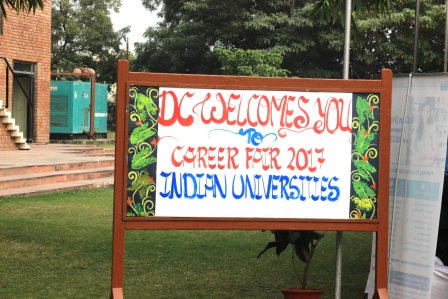 DC WELCOMES YOU
TO
CAREER FAIR 2017
INDIAN UNIVERSITIES